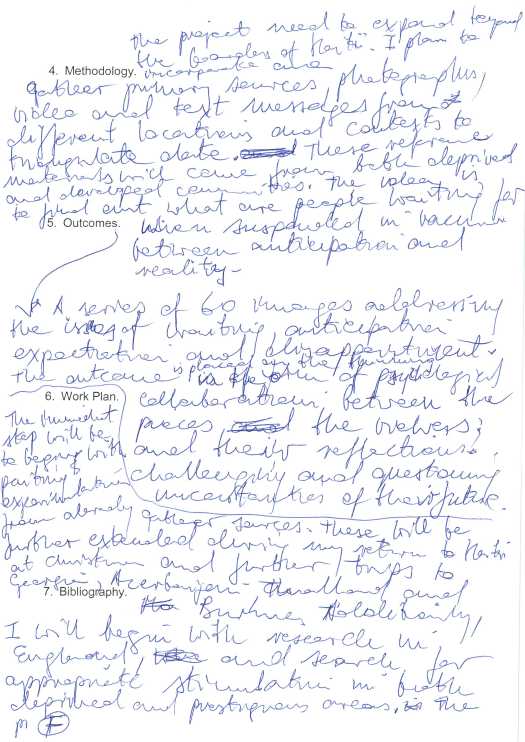 the project need to expand beyond
the boarders of Haiti. I plan to
4. Methodology. incorporate and
gather primary sources photographs,
video and text messages from
different locations and contexts to
data. These reference
materials will come from both deprived
and developed communities. The idea is
to find out what are people waiting for
5. Outcomes. when suspended in vacuum
between anticipation and
reality -
A series of 60 images addressing
the issues of waiting anticipation
expectation and disappointment.
The outcome is placed on the
of psychological
6. Work Plan. collaborations between the
pieces the viewers;
and their reflections.
challenging and questioning
uncertainties of their future.
The immediate
step will be
to begin with
painting
experimentation
from already gather sources. These will be
further extended during my return to Haiti
at christmas and further trips to
Georgia, Azerbaijan Thailand and
7. Bibliography.
Burkina,
I will begin with research in
England, and search for
appropriate stimulation in both
deprived and prestigious areas. The
pr F